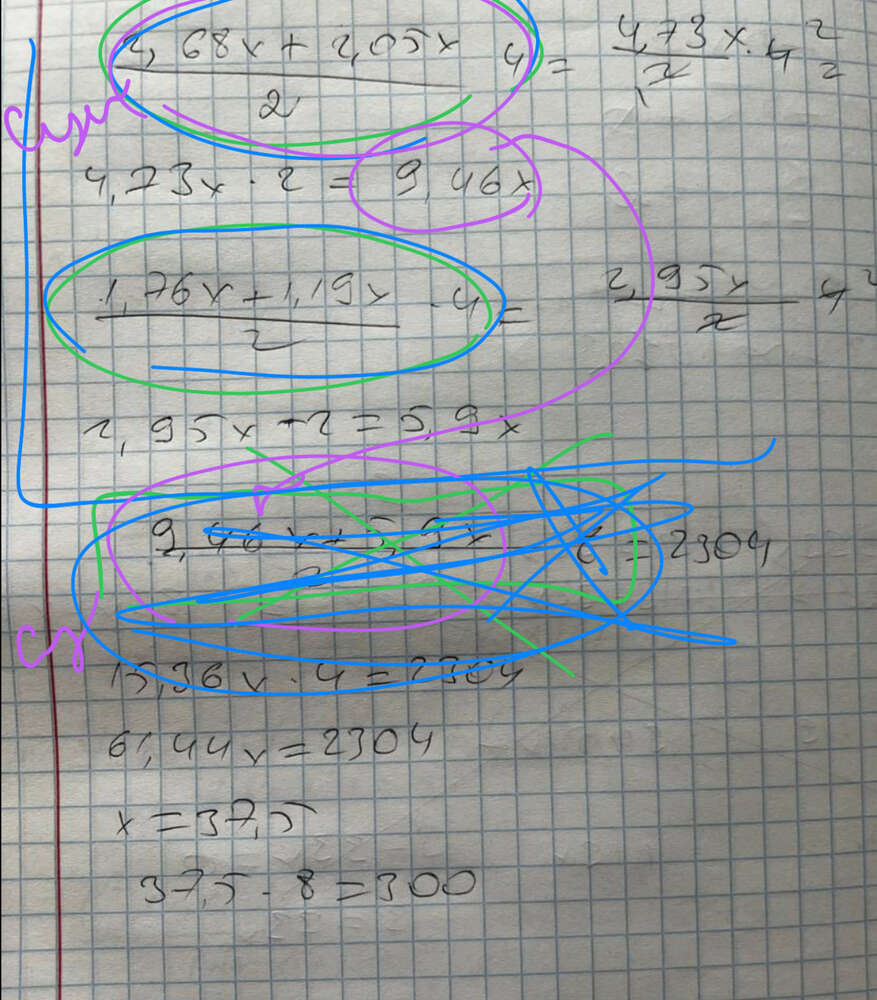 2,68x + 2,05x / 2 4 = 4,73x / 2 · 4 2 / 2
4,73x · 2 = 9,46x
1,76x + 1,19x / 2 · 4 = 2,95x / 2 4 2
2,95x · 2 = 5,9x
9,46x + 5,9x / 2 = 2304
15,36x · 4 = 2304
61,44x = 2304
x = 37,5
37,5 · 8 = 300